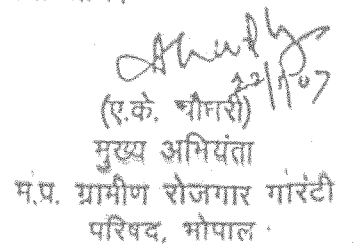 22/1/07
(ए.के. चौनरी)
मुख्य अभियंता
म.प्र. ग्रामीण रोजगार गारंटी
परिषद, भोपाल